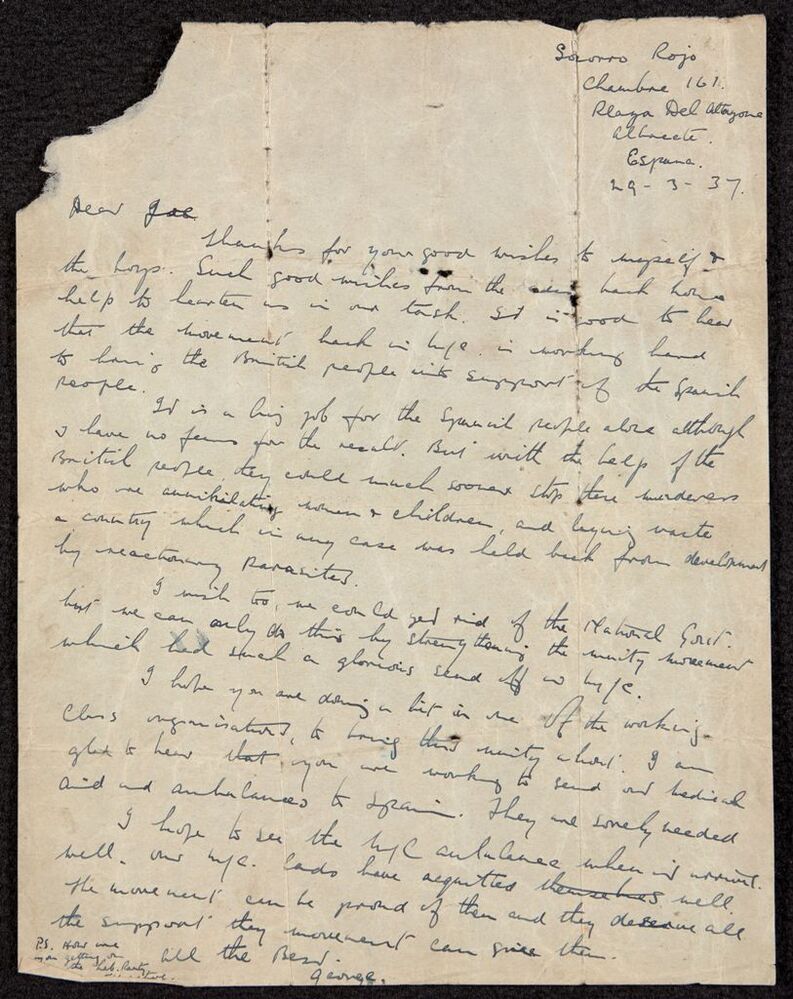 Socorro Rojo
Chambre 161.
Plaza Del Altozono
Albacete.
Espana.
29-3-37.
Dear Joe
Thanks for your good wishes to myself &
the boys. Such good wishes from the back home
help to hearten us in our task. It is good to hear
that the movement back in M/c. is working hard
to bring the British people into support of the Spanish
people.
It is a big job for the Spanish people alone although
I have no fears for the result. But with the help of the
British people they could much sooner stop these murderers
who are annihilating women & children, and laying waste
a country which in any case was held back from development
by reactionary parasites.
I wish to, we could get rid of the National Govt.
but we can only do this by strengthening the unity movement
which had such a glorious send off in M/c.
I hope you are doing a bit in one of the working-
class organisations, to bring this unity about. I am
glad to hear that you are working to send out medical
aid and ambulances to Spain. They are sorely needed
I hope to see the M/C ambulance when it arrives.
Well, our M/c. lads have acquitted themselves well.
The movement can be proud of them and they deserve all
the support they movement can give them.
All the Best.
George.
P.S. How are
you getting on
the Lab. Party